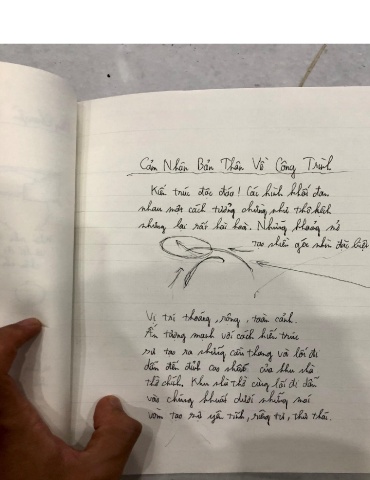 Cảm Nhận Bản Thân Về Công Trình
Kiến trúc độc đáo! Các hình khối đan
nhau một cách tưởng chừng như thô kệch
nhưng lại rất hài hoà. Những khoảng mở
tạo nhiều góc nhìn đặc biệt
Vị trí thoáng, rộng, toàn cảnh.
Ấn tượng mạnh với cách kiến trúc
sư tạo ra những cầu thang và lối đi
dẫn đến đỉnh cao nhất của khu nhà
thờ chính. Khu nhà thờ cùng lối đi dẫn
vào chúng khuất dưới những mái
vòm tạo sự yên tĩnh, riêng tư, thư thái.